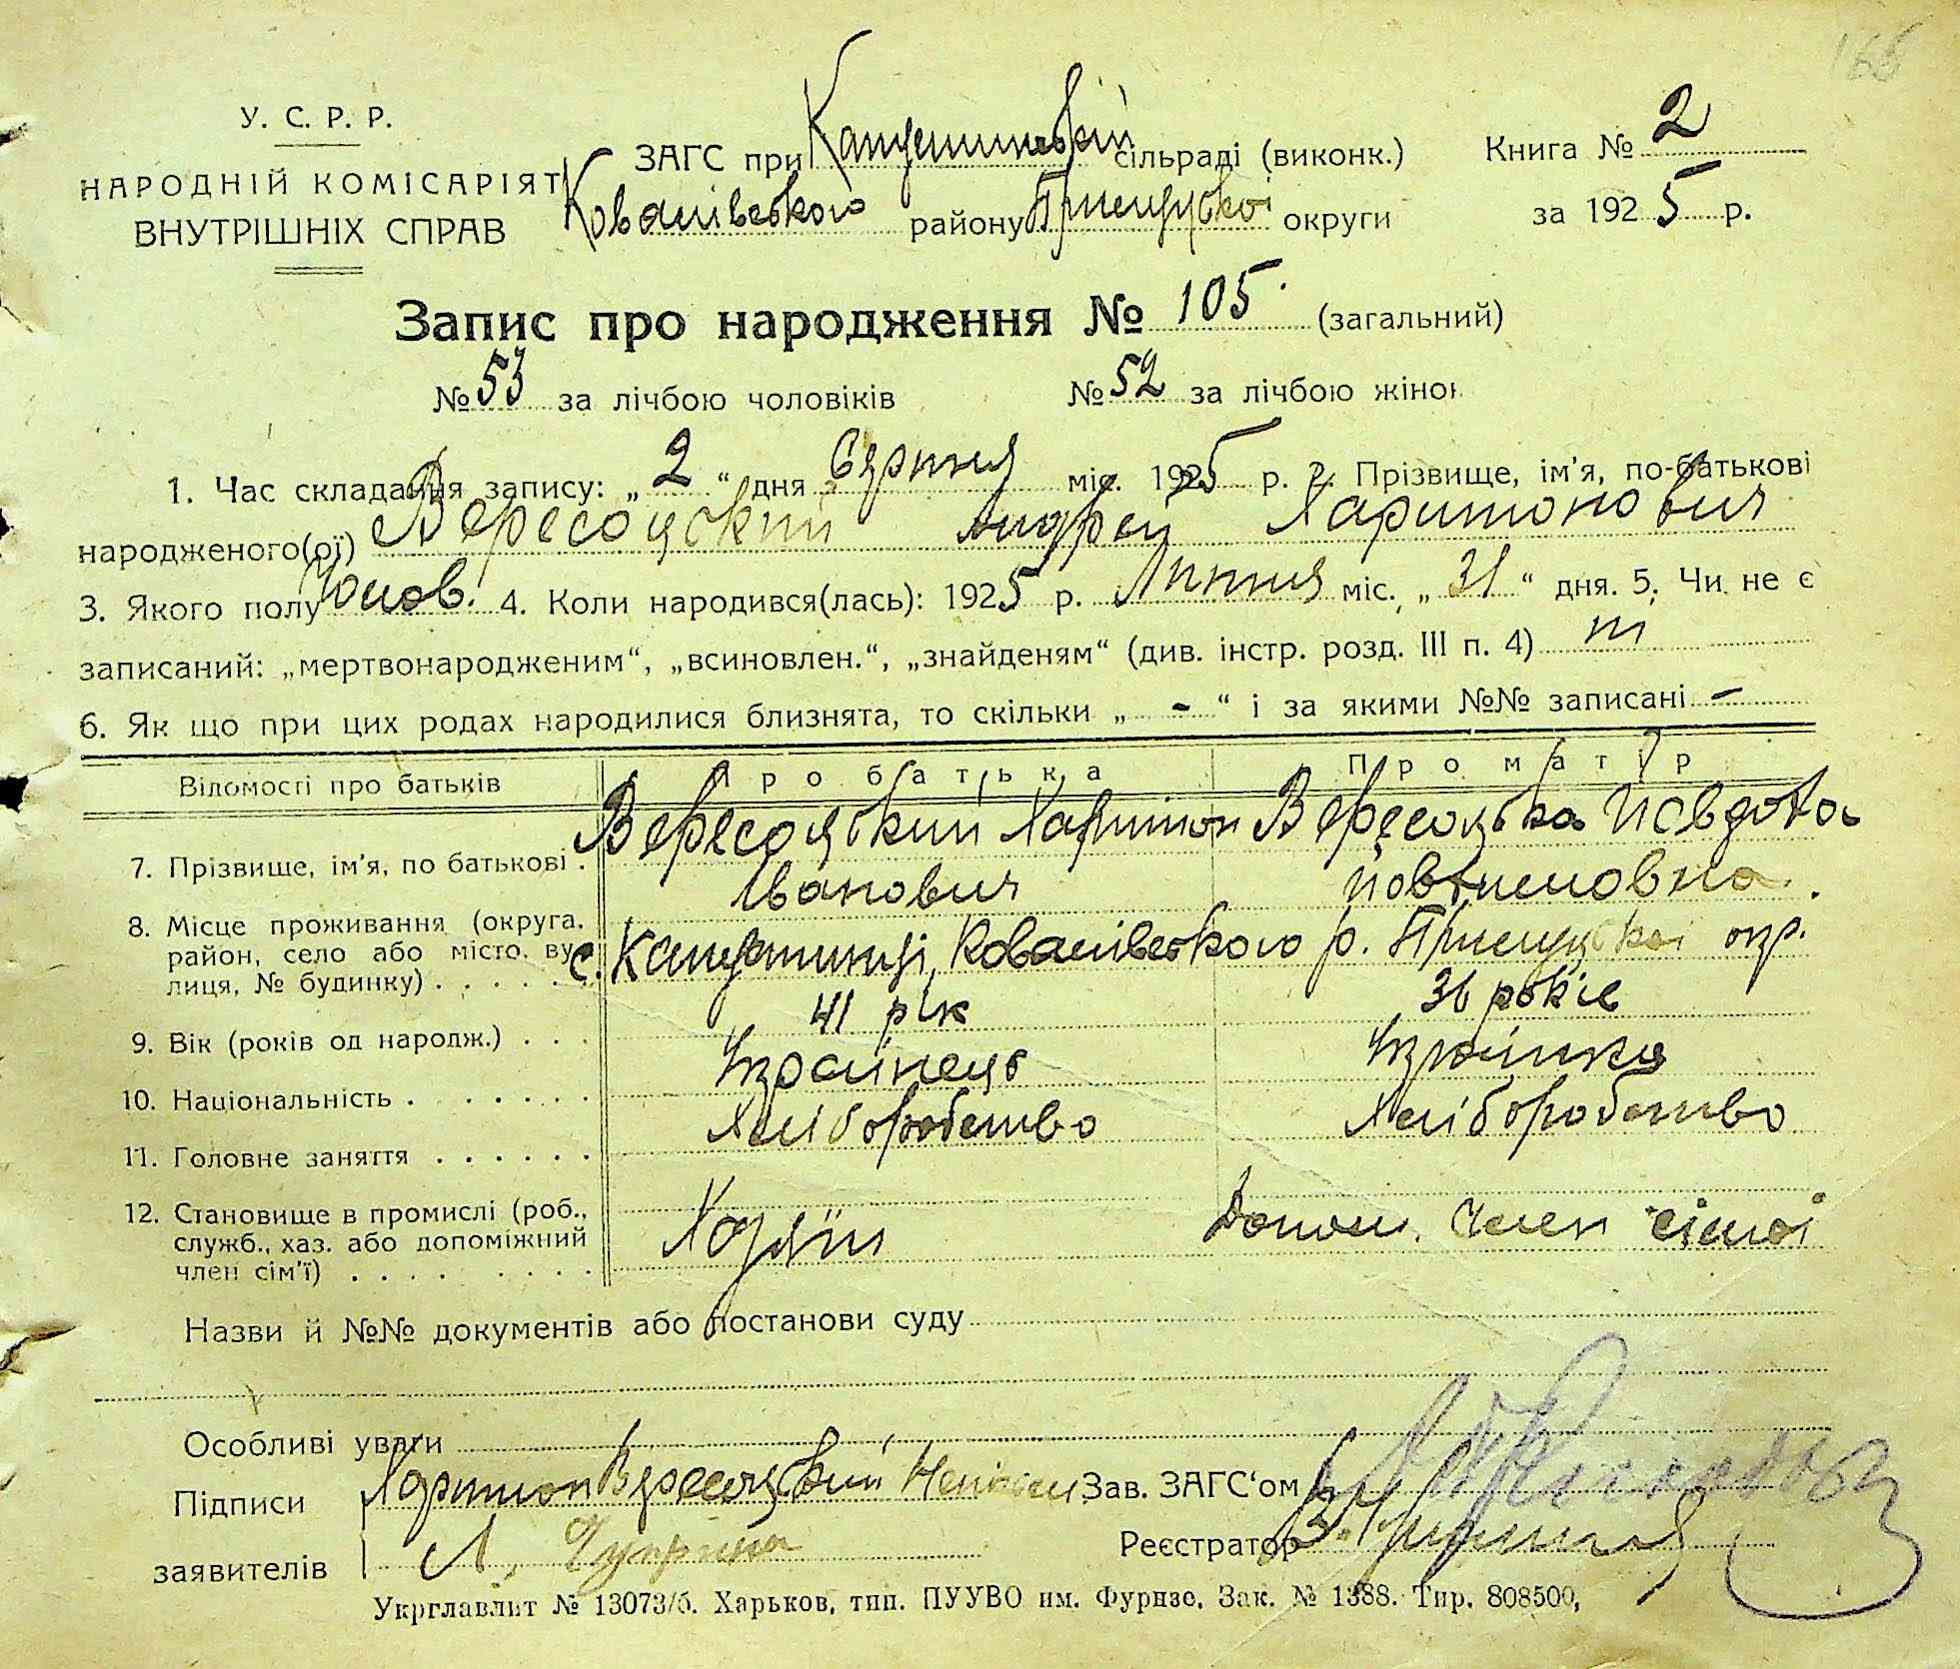 166
У. С. Р. Р.
НАРОДНІЙ КОМІСАРІЯТ
ВНУТРІШНІХ СПРАВ
ЗАГС при Капустинській сільраді (виконк.)
Ковалівського району Прилуцької округи
Книга № 2
за 1925 р.
Запис про народження № 105 (загальний)
№ 53 за лічбою чоловіків № 52 за лічбою жінок
1. Час складання запису: „2“ дня Серпня міс. 1925 р. 2. Прізвище, ім'я, по-батькові
народженого(ої) Вересоцький Андрей Харитонович
3. Якого полу Чолов. 4. Коли народився(лась): 1925 р. Липня міс. „31“ дня. 5. Чи не є
записаний: „мертвонародженим“, „всиновлен.“, „знайденям“ (див. інстр. розд. III п. 4) ні
6. Як що при цих родах народилися близнята, то скільки „ - “ і за якими №№ записані -
Відомості про батьків Про батька Про матір
7. Прізвище, ім'я, по батькові . Вересоцький Харитон Іванович Вересоцька Йовдоха
8. Місце проживання (округа, район, село або місто, вулиця, № будинку) . . . . . с. Капустинці, Ковалівського р. Прилуцької окр.
9. Вік (років од народж.) . . . 41 рік 36 років
10. Національність . . . . . . . Українець Українка
11. Головне заняття . . . . . . Хліборобство Хліборобство
12. Становище в промислі (роб., служб., хаз. або допоміжний член сім'ї) . . . . . . . . Хазяїн Допом. член сімьї
Назви й №№ документів або постанови суду
Особливі уваги
Підписи Харитон Вересоцький Зав. ЗАГС‘ом
заявителів Л. Чуприна Реєстратор
Укрглавліт № 13073/б. Харьков, тип. ПУУВО им. Фурнзе, Зак. № 1388. Тир. 808500,